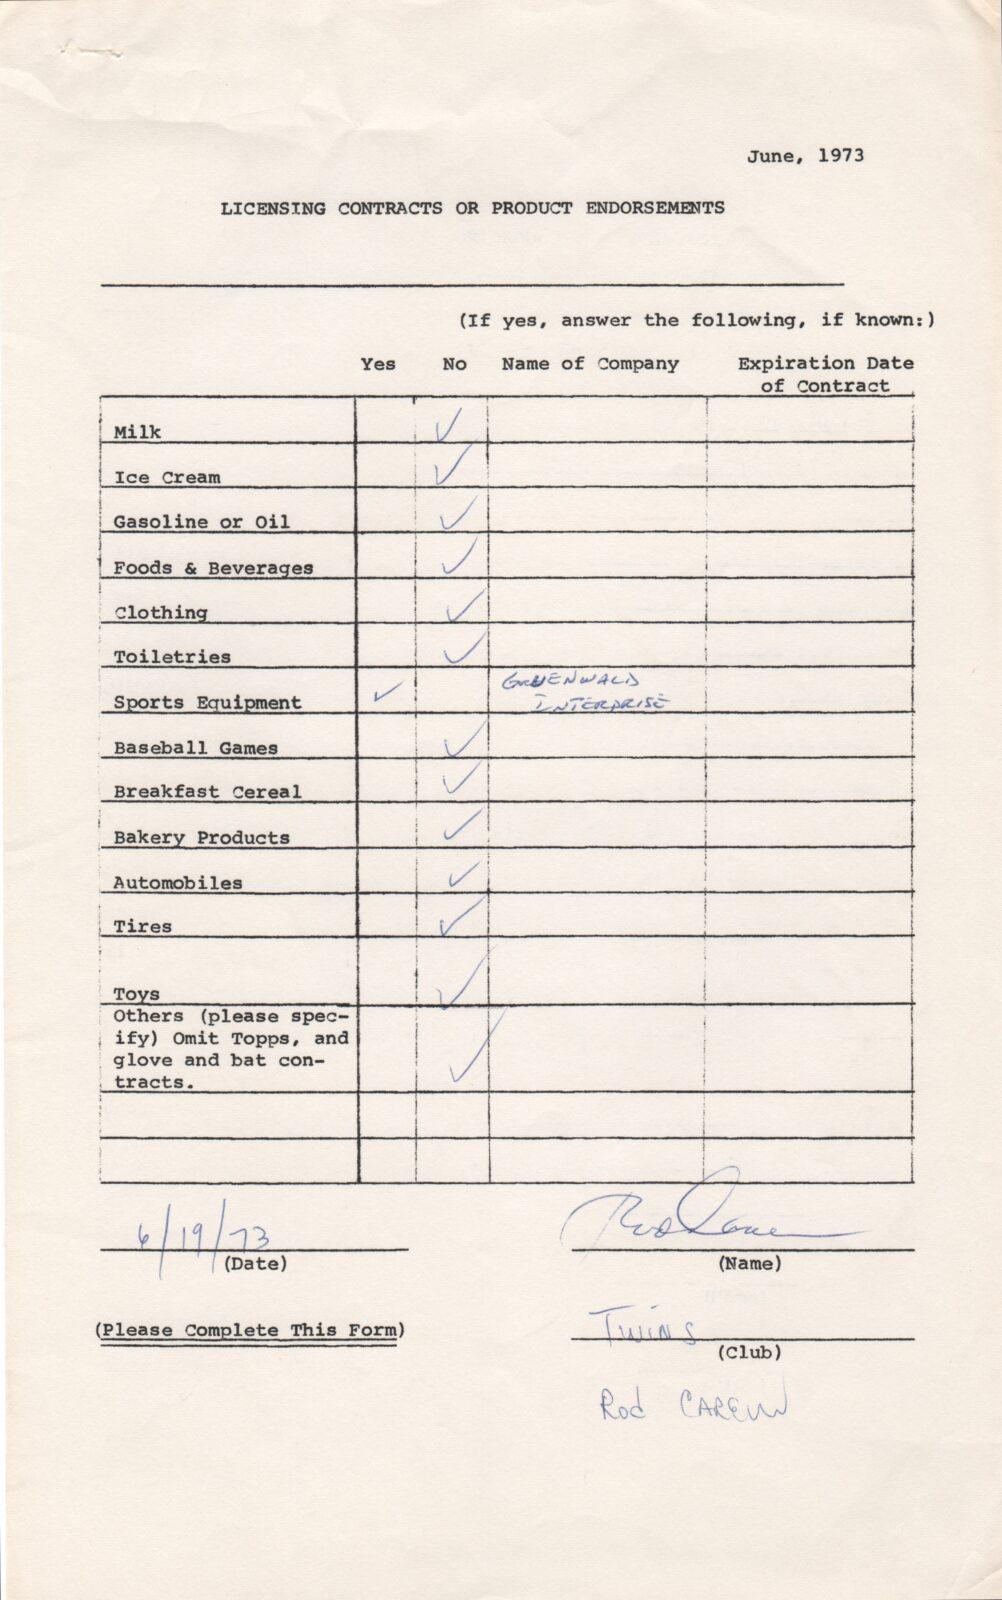 June, 1973
LICENSING CONTRACTS OR PRODUCT ENDORSEMENTS
(If yes, answer the following, if known:)
Yes No Name of Company Expiration Date
of Contract
Milk ✓
Ice Cream ✓
Gasoline or Oil ✓
Foods & Beverages ✓
Clothing ✓
Toiletries ✓
GRUENWALD
Sports Equipment ✓ INTERPRISE
Baseball Games ✓
Breakfast Cereal ✓
Bakery Products ✓
Automobiles ✓
Tires ✓
Toys ✓
Others (please spec-
ify) Omit Topps, and
glove and bat con-
tracts. ✓
6/19/73 Rod Carew
(Date) (Name)
(Please Complete This Form) Twins
(Club)
Rod CAREW